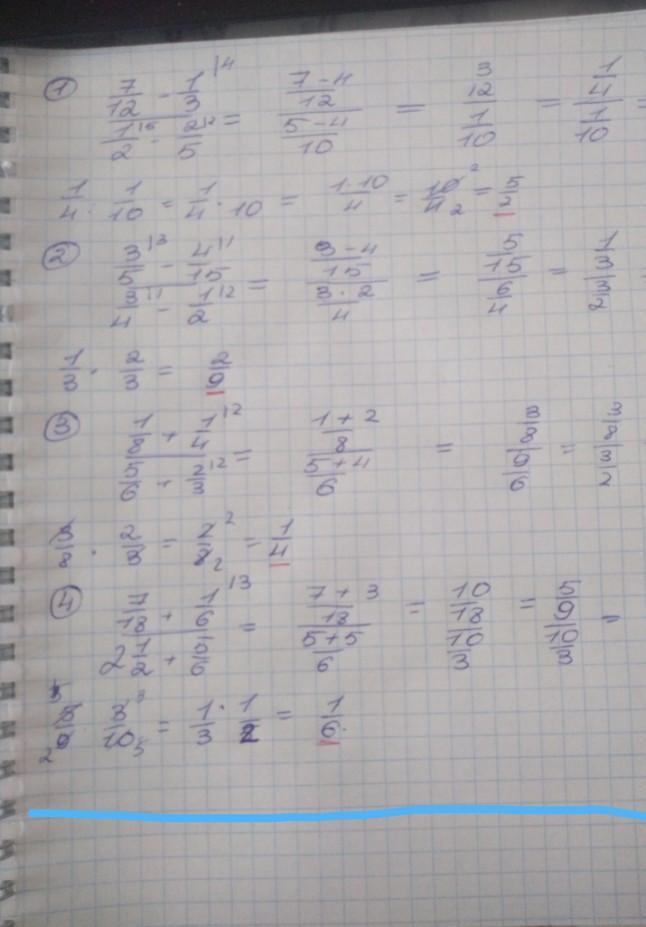 1 7/12 - 1/3 |4 / 1/2 |5 - 2/5 |2 = 7-4/12 / 5-4/10 = 3/12 / 1/10 = 1/4 / 1/10 =
1/4 . 1/10 = 1/4 . 10 = 1·10/4 = 10/4 2 2 = 5/2
2 3/5 |3 - 4/15 |1 / 3/4 |1 - 1/2 |2 = 9-4/15 / 3·2/4 = 5/15 / 6/4 = 1/3 / 3/2
1/3 · 2/3 = 2/9
3 1/8 + 1/4 |2 / 5/6 + 2/3 |2 = 1+2/8 / 5+4/6 = 3/8 / 9/6 = 3/8 / 3/2
3/8 · 2/3 = 2/8 2 2 = 1/4
4 7/18 + 1/6 |3 / 2 1/2 + 5/6 = 7+3/18 / 5+5/6 = 10/18 / 10/3 = 5/9 / 10/3 =
5/9 3/10 = 1/3 · 1/2 = 1/6.